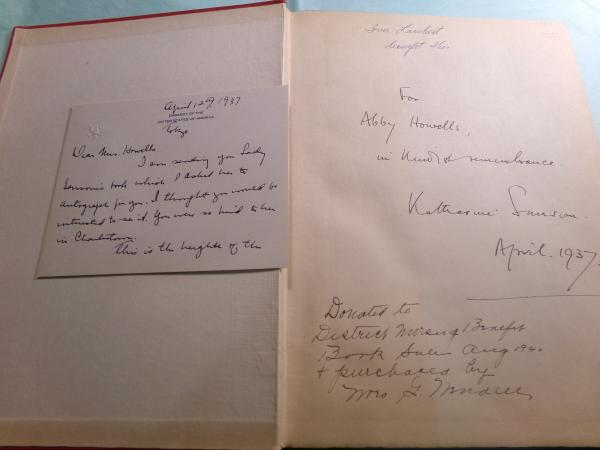 April 12th, 1937
EMBASSY OF THE
UNITED STATES OF AMERICA
Tokyo
Dear Mrs. Howells
I am sending you Lady
Sansom's book which I asked her to
autograph for you. I thought you would be
interested to see it. You were so kind to her
in Charlestown.
This is the height of the
For
Abby Howells,
in kindest remembrance.
Katharine Sansom.
April. 1937.
Donated to
District Nursing Benefit
Book Sale Aug 194
+ purchased by
Mrs G.